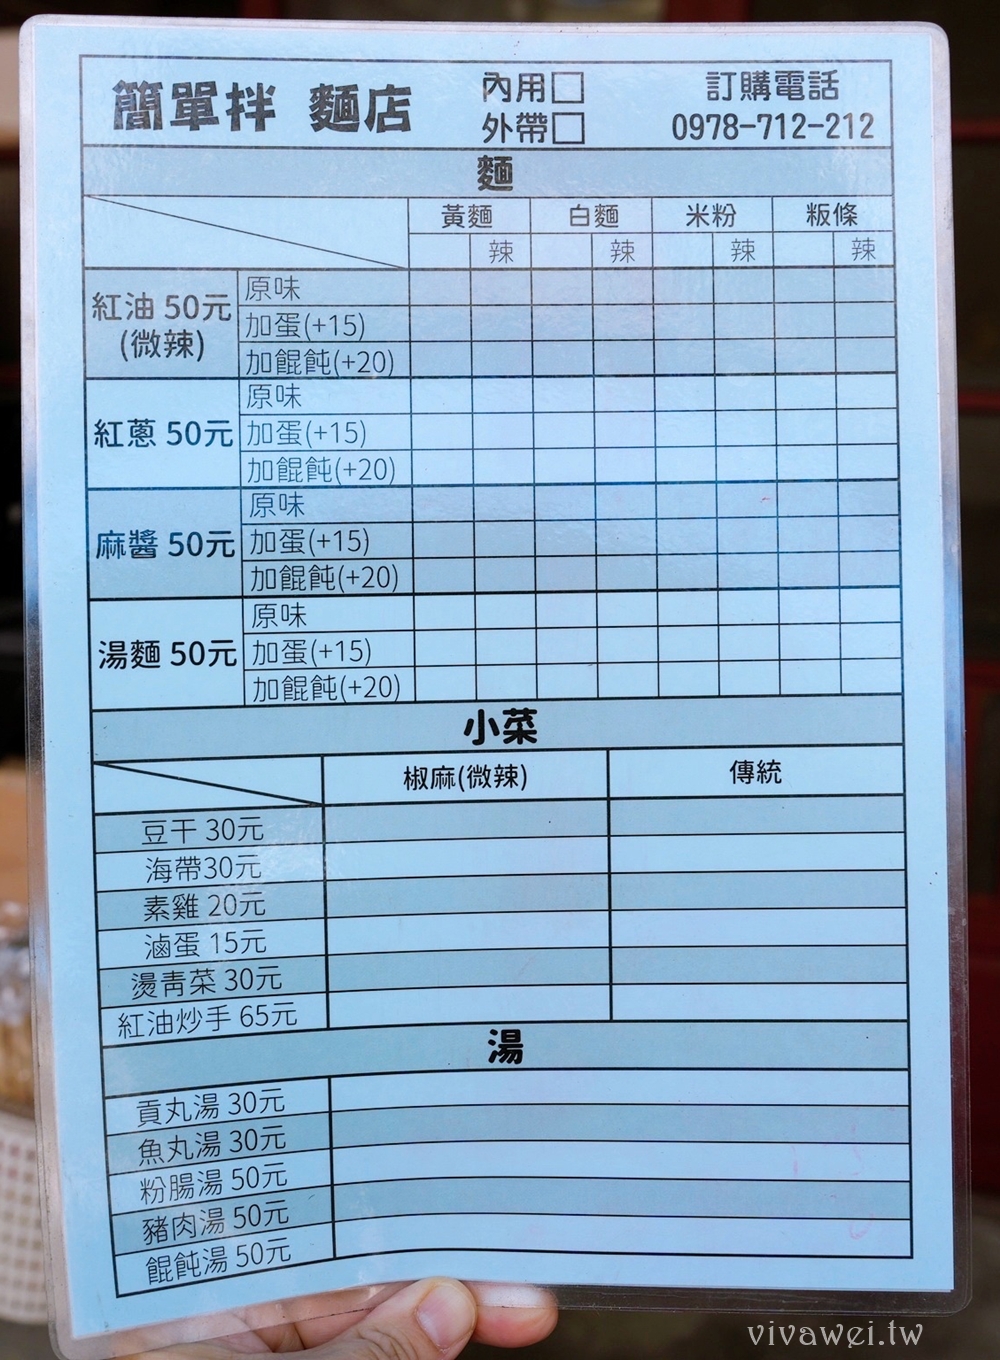 簡單拌 麵店
內用□
外帶□
訂購電話
0978-712-212
麵
黃麵 白麵 米粉 粄條
辣 辣 辣 辣
紅油 50元
(微辣)
原味
加蛋(+15)
加餛飩(+20)
紅蔥 50元
原味
加蛋(+15)
加餛飩(+20)
麻醬 50元
原味
加蛋(+15)
加餛飩(+20)
湯麵 50元
原味
加蛋(+15)
加餛飩(+20)
小菜
椒麻(微辣) 傳統
豆干 30元
海帶30元
素雞 20元
滷蛋 15元
燙青菜 30元
紅油炒手 65元
湯
貢丸湯 30元
魚丸湯 30元
粉腸湯 50元
豬肉湯 50元
餛飩湯 50元
vivawei.tw